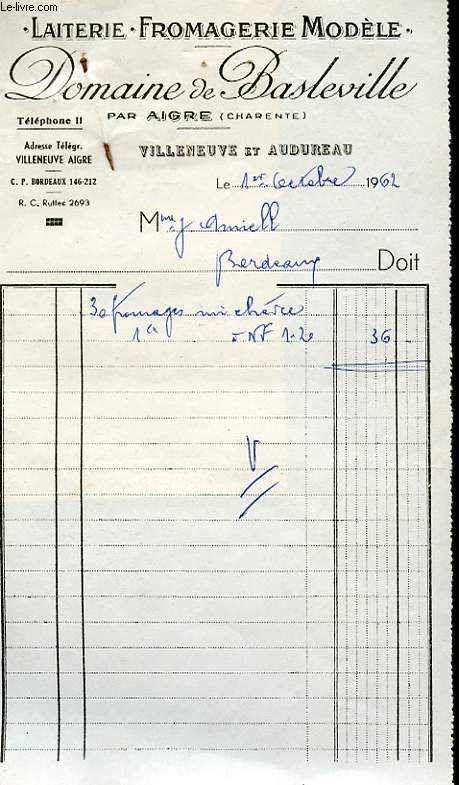 www.le-livre.com
·LAITERIE·FROMAGERIE MODÈLE·
Domaine de Basleville
PAR AIGRE (CHARENTE)
Téléphone 11
Adresse Télégr.
VILLENEUVE AIGRE
C. P. BORDEAUX 146-212
R. C. Ruffec 2693
VILLENEUVE ET AUDUREAU
Le 1er Octobre 1962
Mme J Amiell
Bordeaux Doit
30 fromages mi chèvre
NF 1.20 36 -